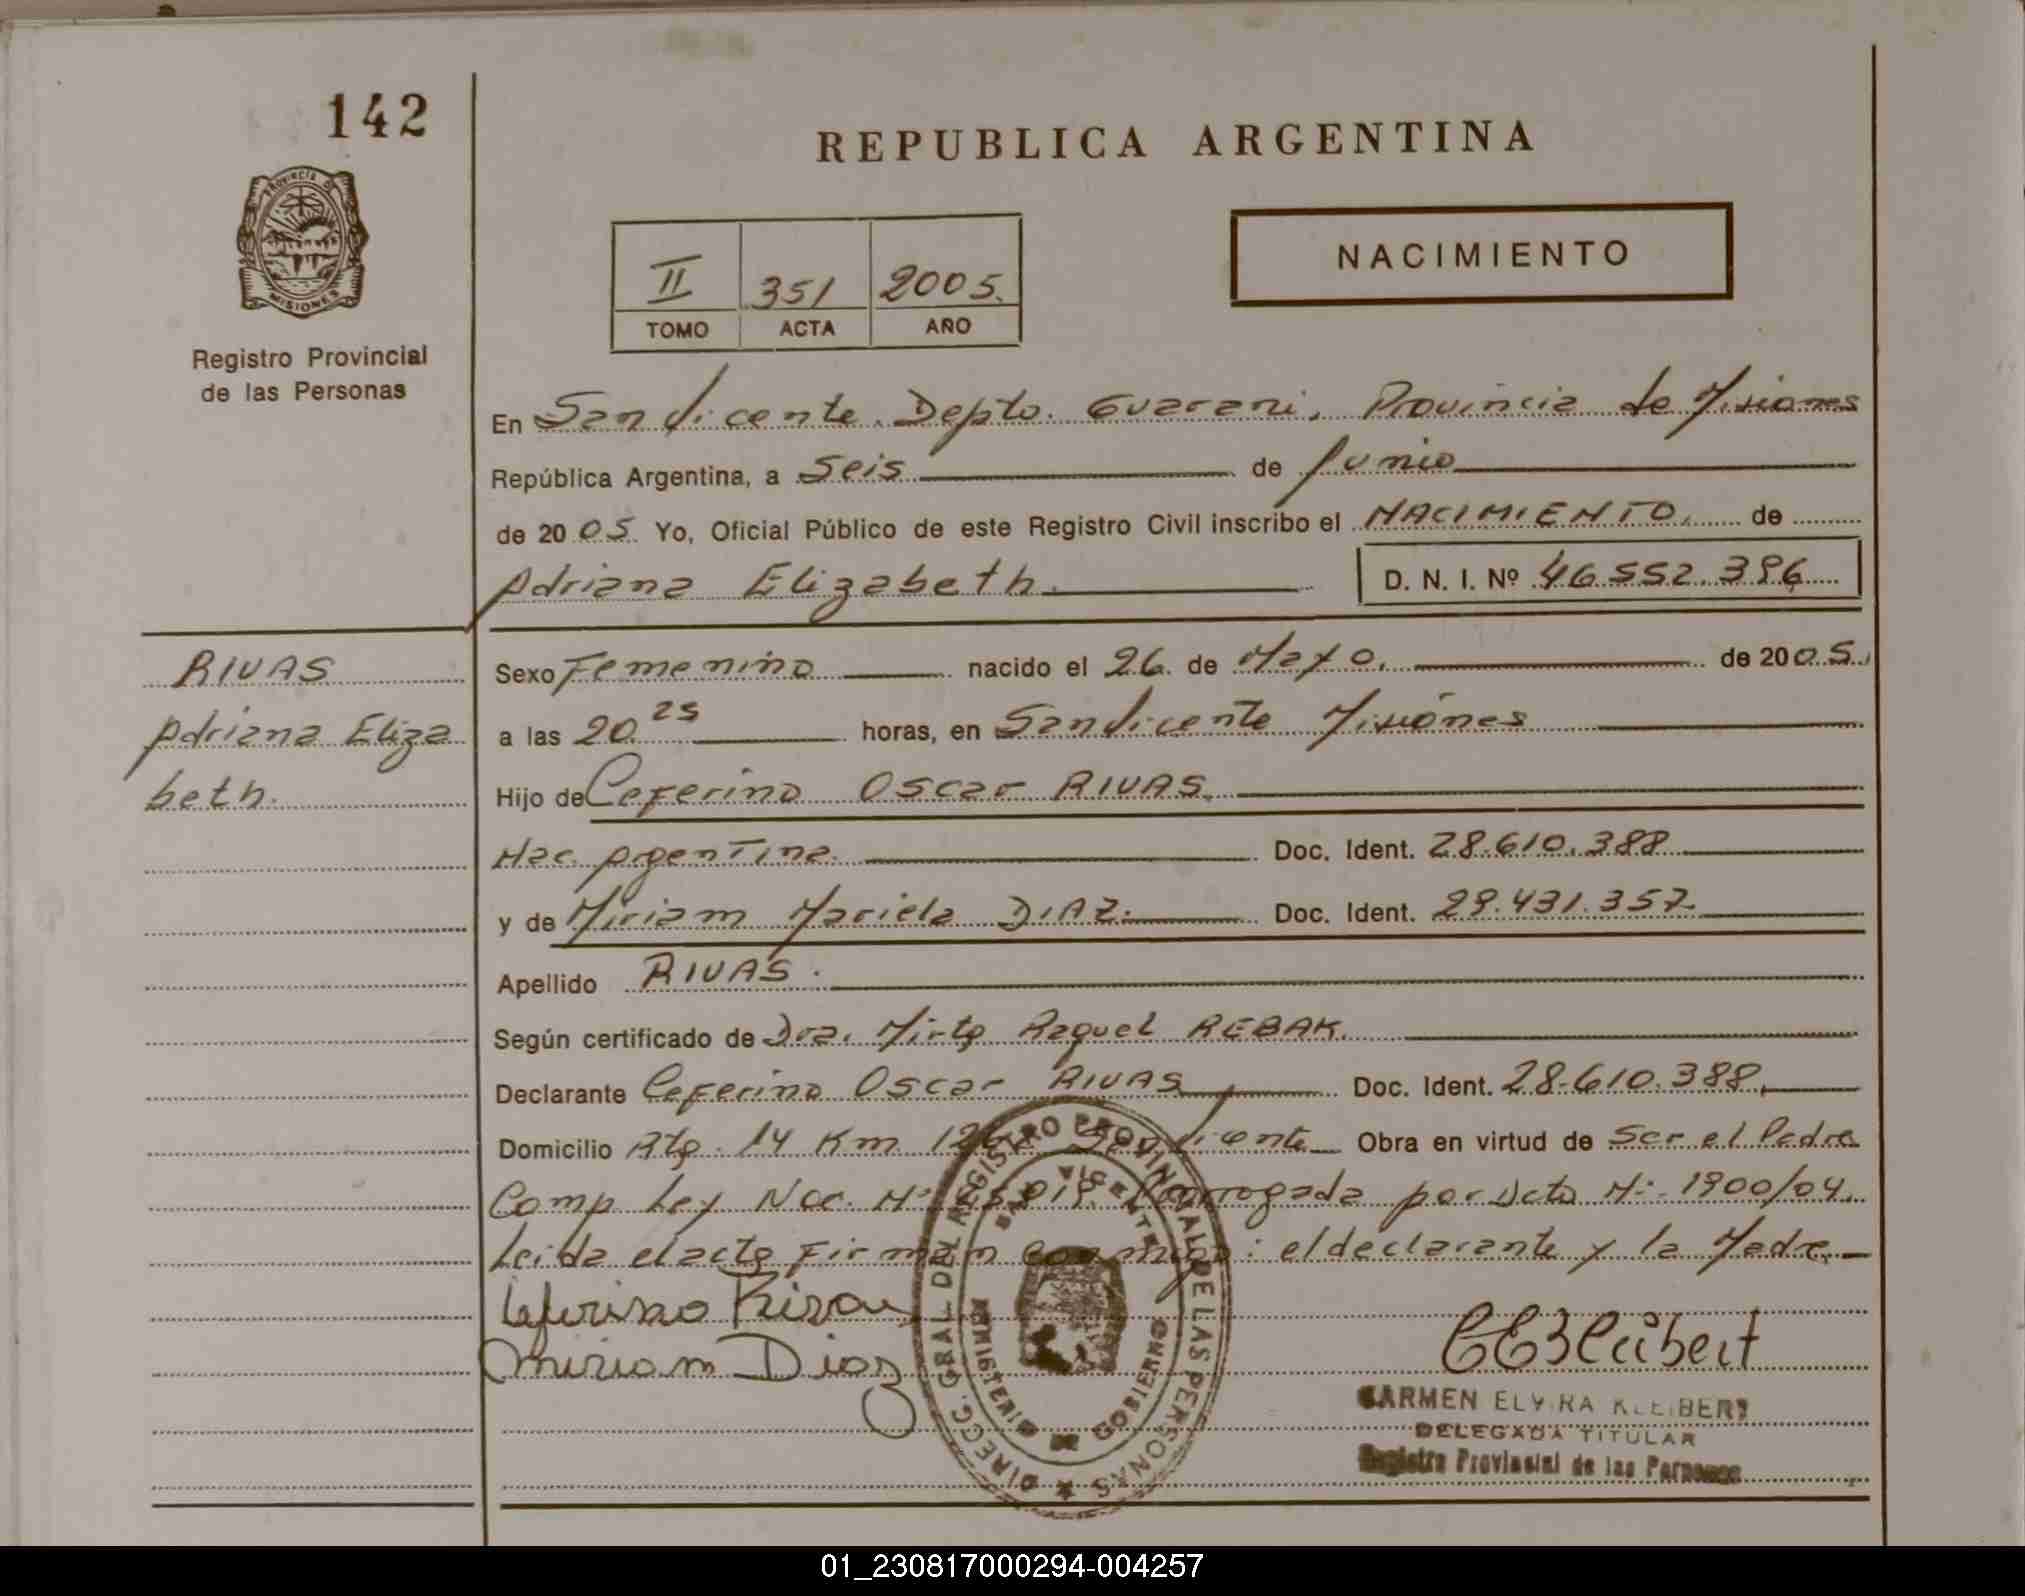 142
REPUBLICA ARGENTINA
PROVINCIA DE
MISIONES
Registro Provincial
de las Personas
II 351 2005.
TOMO ACTA AÑO
NACIMIENTO
En San Vicente. Depto. Guarani, Provincia de Misiones
República Argentina, a Seis de Junio
de 2005. Yo, Oficial Público de este Registro Civil inscribo el NACIMIENTO. de
Adriana Elizabeth. D. N. I. Nº 46.552.396
RIVAS
Adriana Eliza
beth.
Sexo Femenino nacido el 26. de Mayo. de 2005.
a las 20.25 horas, en San Vicente Misiones
Hijo de Ceferino Oscar RIVAS.
Nac. Argentina. Doc. Ident. 28.610.388
y de Miriam Mariela DIAZ. Doc. Ident. 29.431.357.
Apellido RIVAS.
Según certificado de Dra. Mirta Raquel REBAK.
Declarante Ceferino Oscar RIVAS Doc. Ident. 28.610.388,
Domicilio Rta. 14 Km San Vicente Obra en virtud de Ser el Padre
Comp Ley Nac. Nº Prorrogada por Dcto N:. 1900/04.
Leida el acta Firman Conmigo: el declarante y la Madre.
Ceferino Rivas
Miriam Diaz
DIRECC. GRAL. DEL REGISTRO PROVINCIAL DE LAS PERSONAS
SAN VICENTE
MINISTERIO DE GOBIERNO
CARMEN ELVIRA KLEIBERT
DELEGADA TITULAR
Registro Provincial de las Personas
01_230817000294-004257